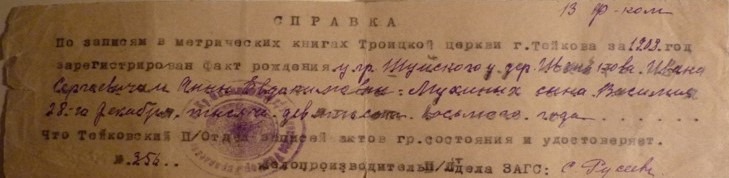 13 ф-ком
СПРАВКА
По записям в метрических книгах Троицкой церкви г.Тейкова за 1908 год
зарегистрирован факт рождения у гр. Шуйского у. дер. Ивана
Сергеевича Анны Евдакимовны - Мукиных сына Василия
28-го декабря тысяча девятьсот восьмого года.......
Что Тейковский П/Отдел записей актов гр.состояния и удостоверяет.
№ 256..
Делопроизводитель П/отдела ЗАГС: С Гусев